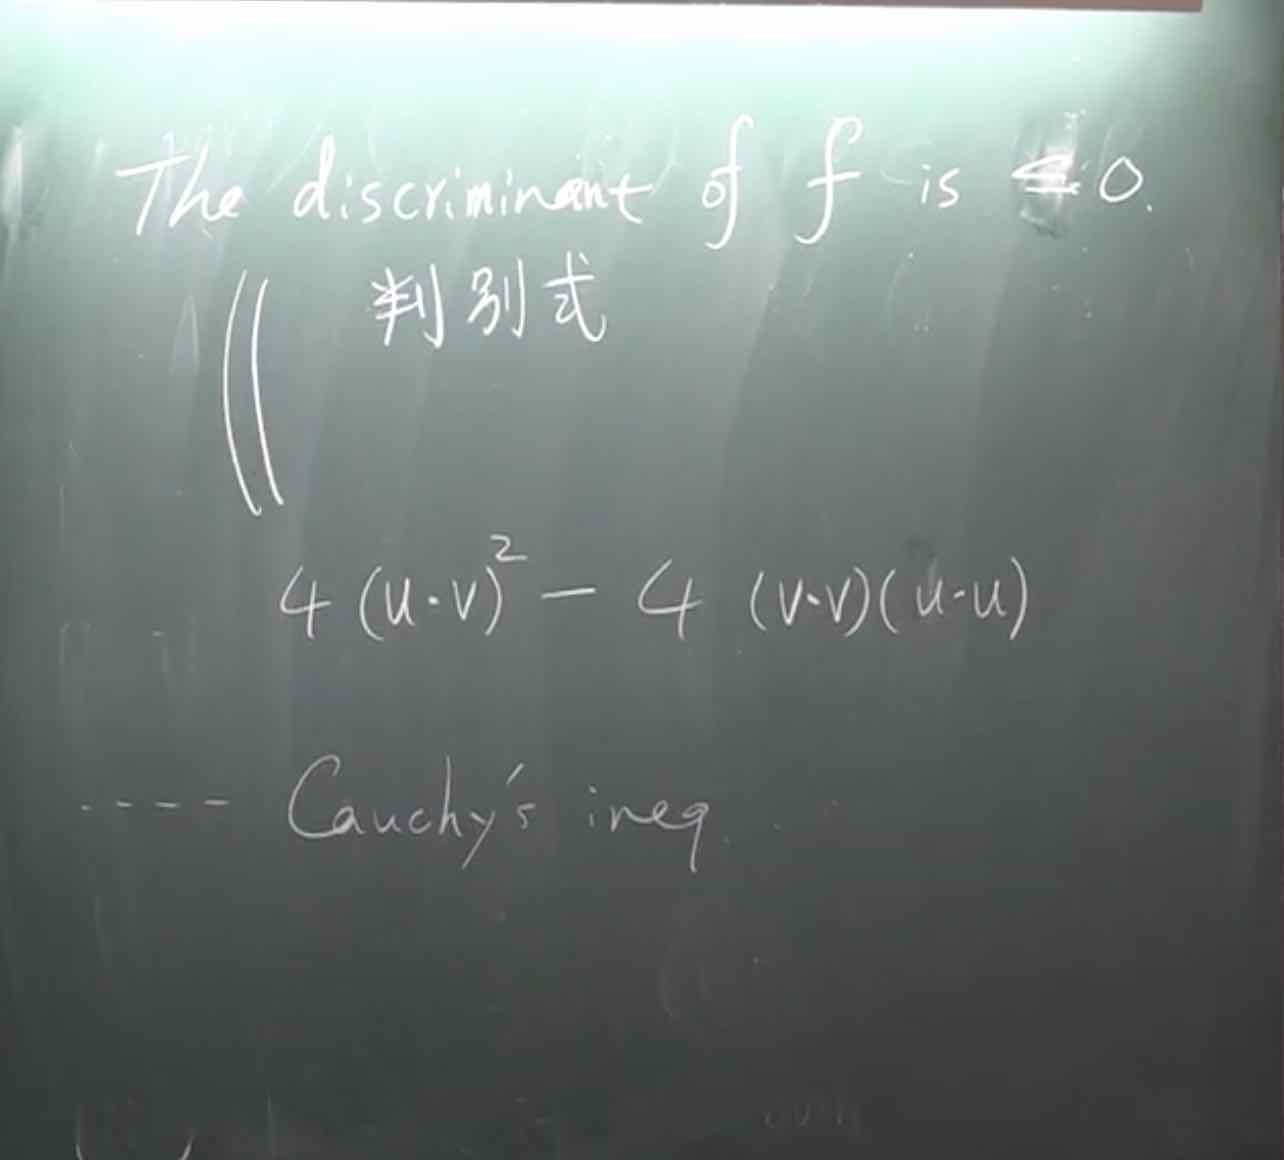 The discriminant of f is ≤ 0.
判別式
||
4 (u·v)² − 4 (v·v)(u·u)
---- Cauchy's ineq.